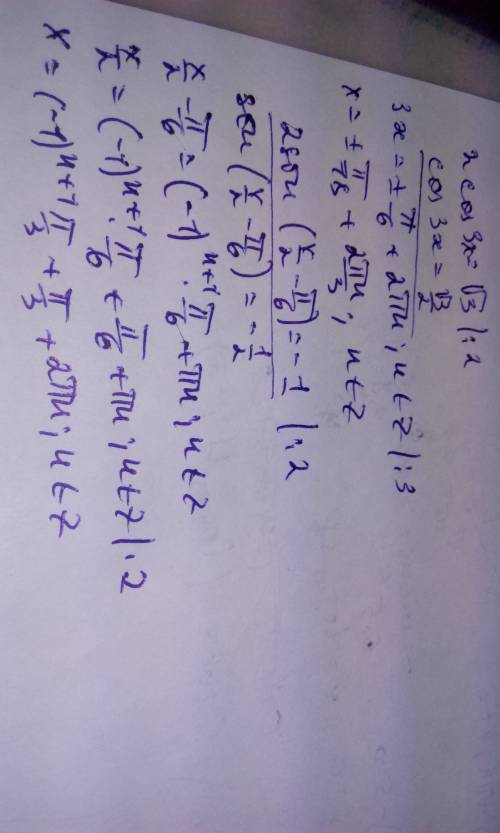 2 cos 3x = √3 |:2
cos 3x = √3/2
3x = ± π/6 + 2πn; n ∈ Z |:3
x = ± π/18 + 2πn/3; n ∈ Z
2 sin (x/2 - π/6) = -1 |:2
sin (x/2 - π/6) = -1/2
x/2 - π/6 = (-1)^(n+1) · π/6 + πn; n ∈ Z
x/2 = (-1)^(n+1) · π/6 + π/6 + πn; n ∈ Z |·2
x = (-1)^(n+1) π/3 + π/3 + 2πn; n ∈ Z